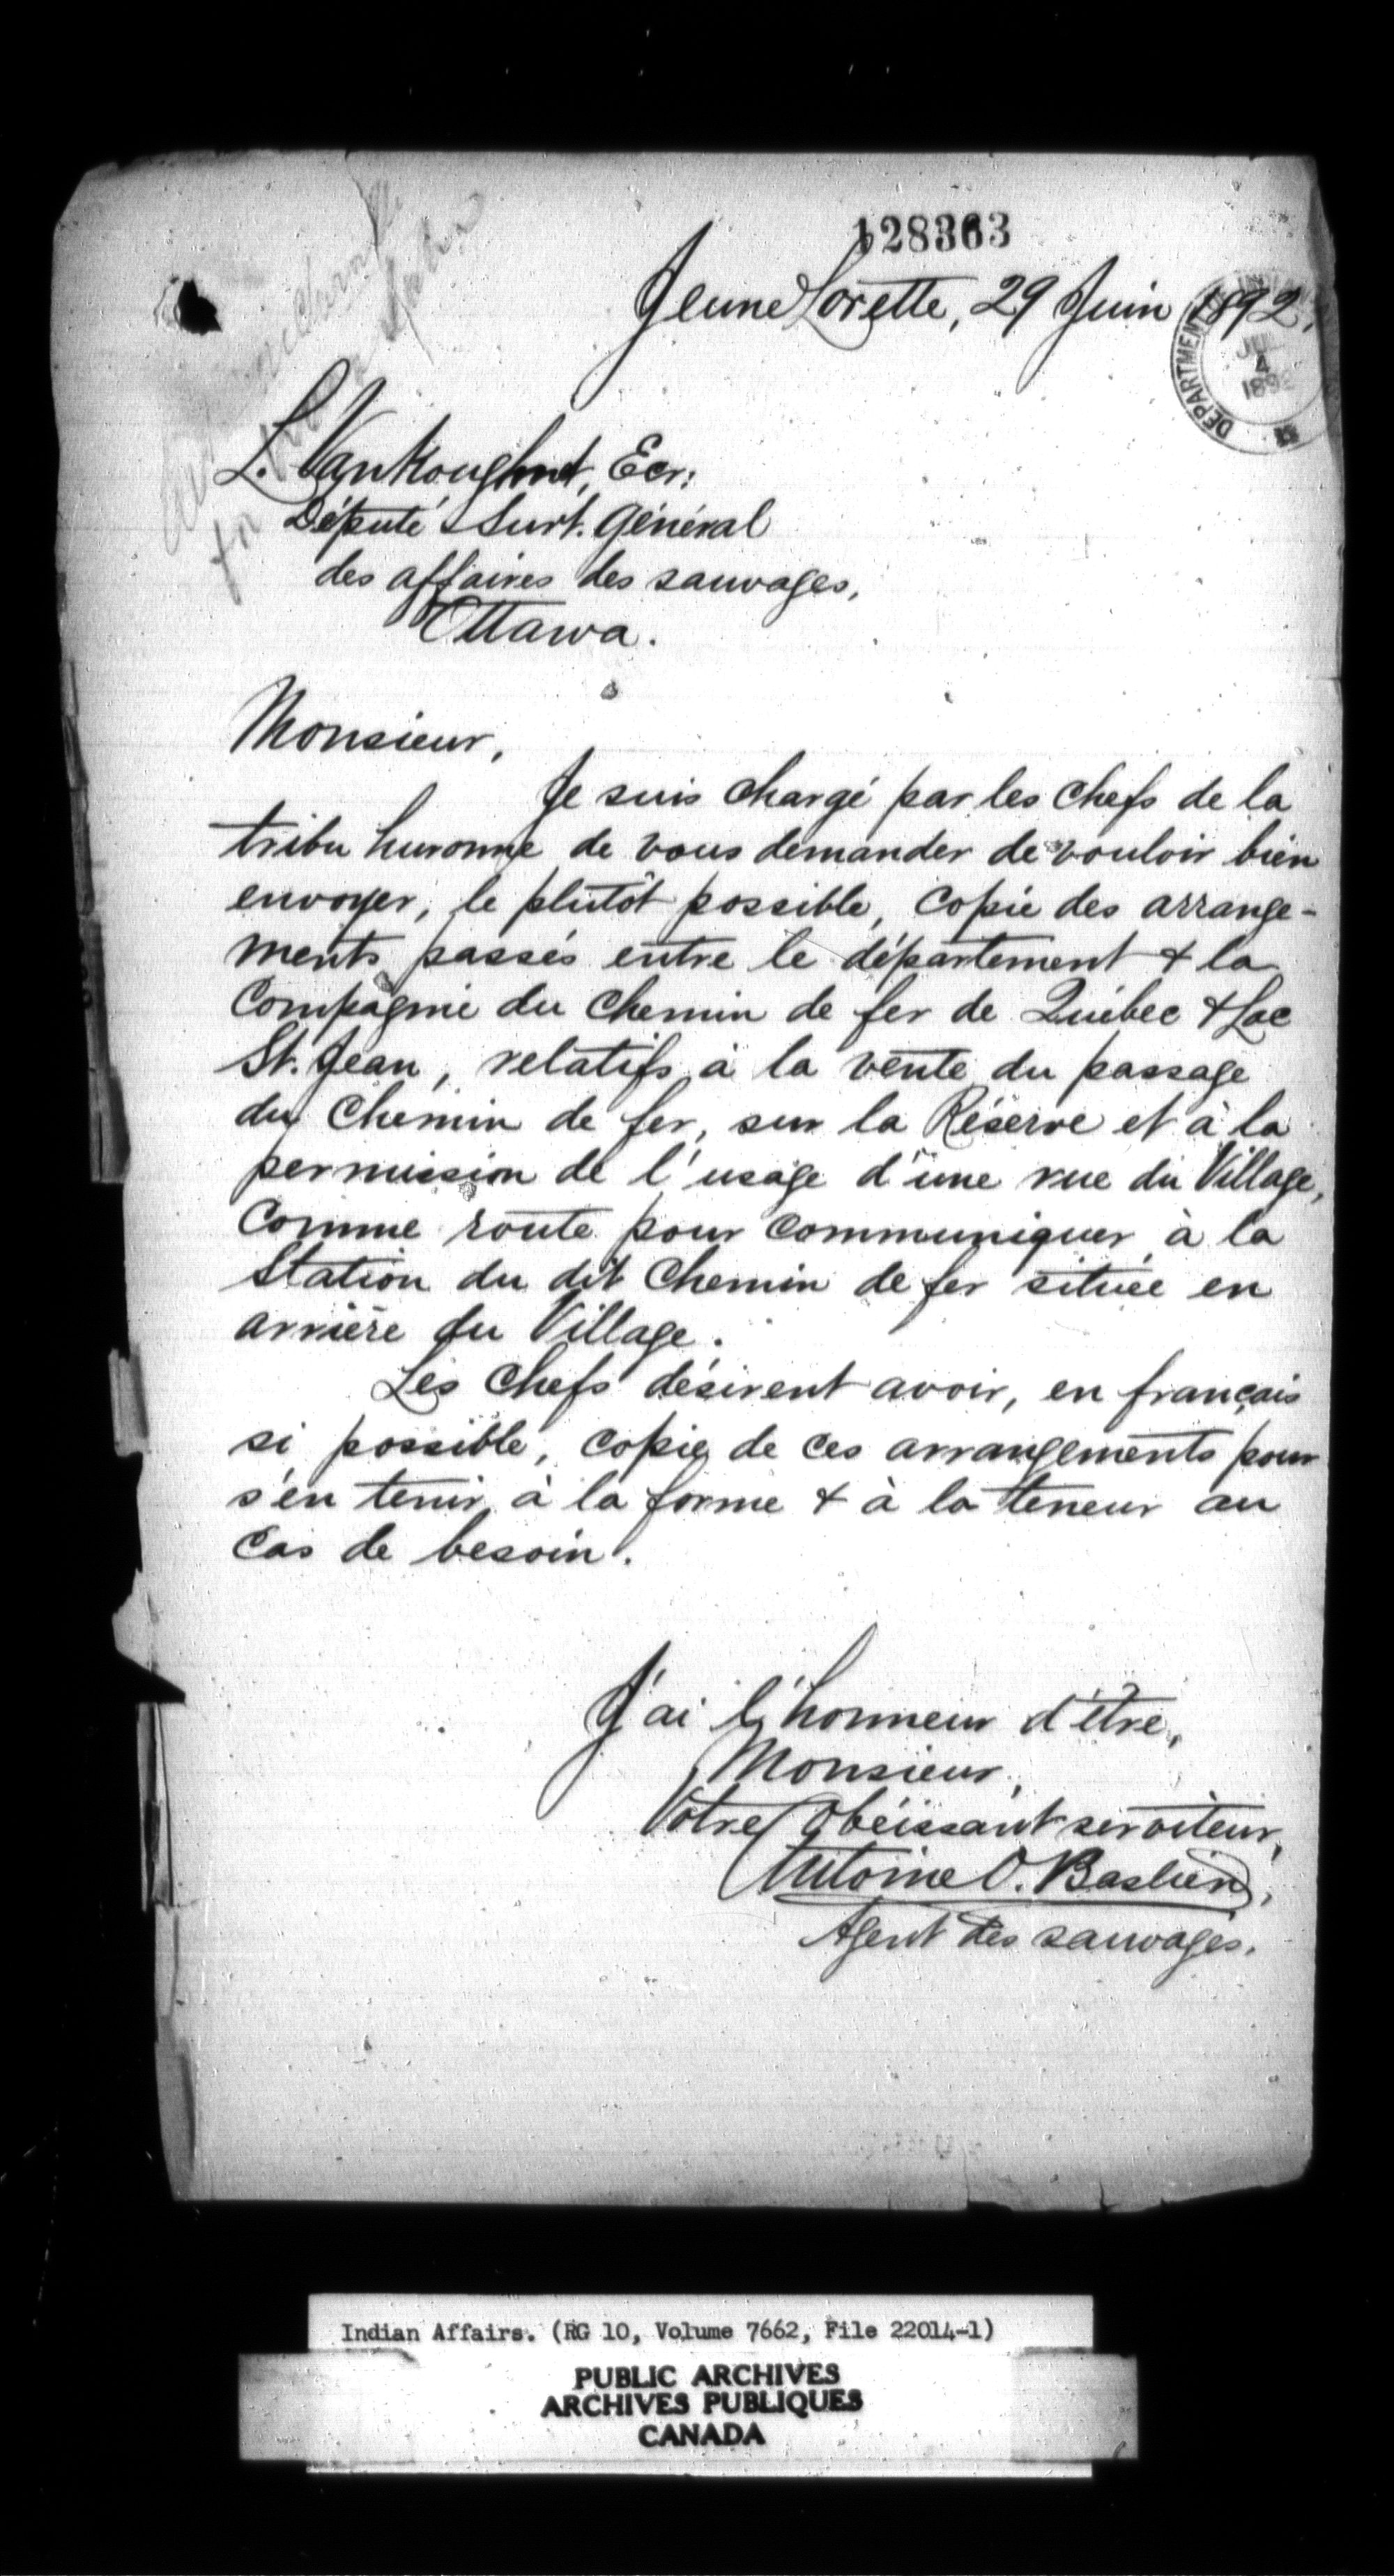 128363
Jeune Lorette, 29 Juin 1892.
DEPARTMENT INDIAN
JUL
4
1892
L. VanKoughnet, Ecr:
Député Surt. Général
des affaires des sauvages,
Ottawa.
Monsieur,
Je suis chargé par les chefs de la
tribu huronne de vous demander de vouloir bien
envoyer, le plutôt possible, copie des arrange-
ments passés entre le département & la
Compagnie du chemin de fer de Québec & Lac
St. Jean, relatifs à la vente du passage
du chemin de fer, sur la Réserve et à la
permission de l'usage d'une rue du Village,
comme route pour communiquer à la
Station du dit chemin de fer située en
arrière du Village.
Les chefs désirent avoir, en français
si possible, copie de ces arrangements pour
s'en tenir à la forme & à la teneur au
cas de besoin.
J'ai l'honneur d'être,
Monsieur,
Votre obéissant serviteur,
Antoine O. Bastien,
Agent des sauvages.
Indian Affairs. (RG 10, Volume 7662, File 22014-1)
PUBLIC ARCHIVES
ARCHIVES PUBLIQUES
CANADA